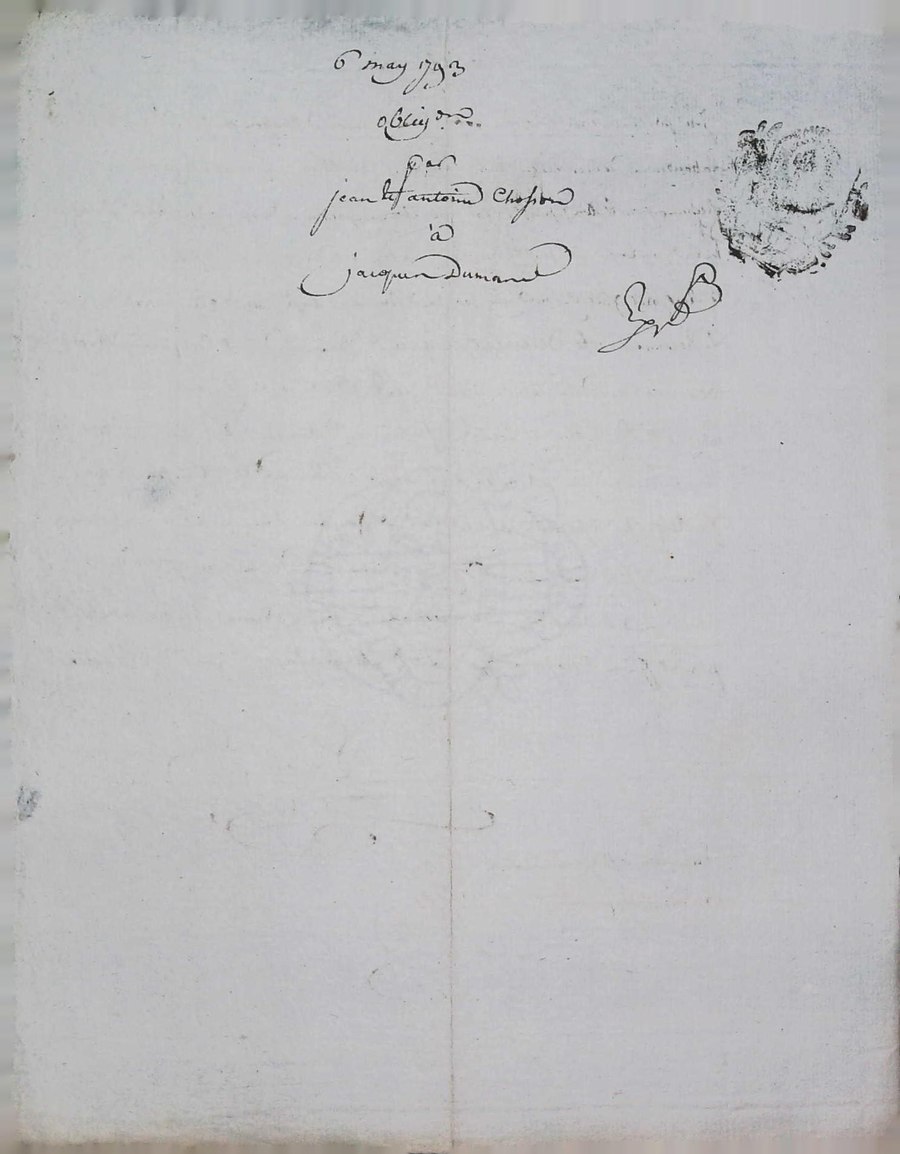 6 may 1793
oblig.on
par
jean et antoine Chosson
à
jacques Dumarel
Exp